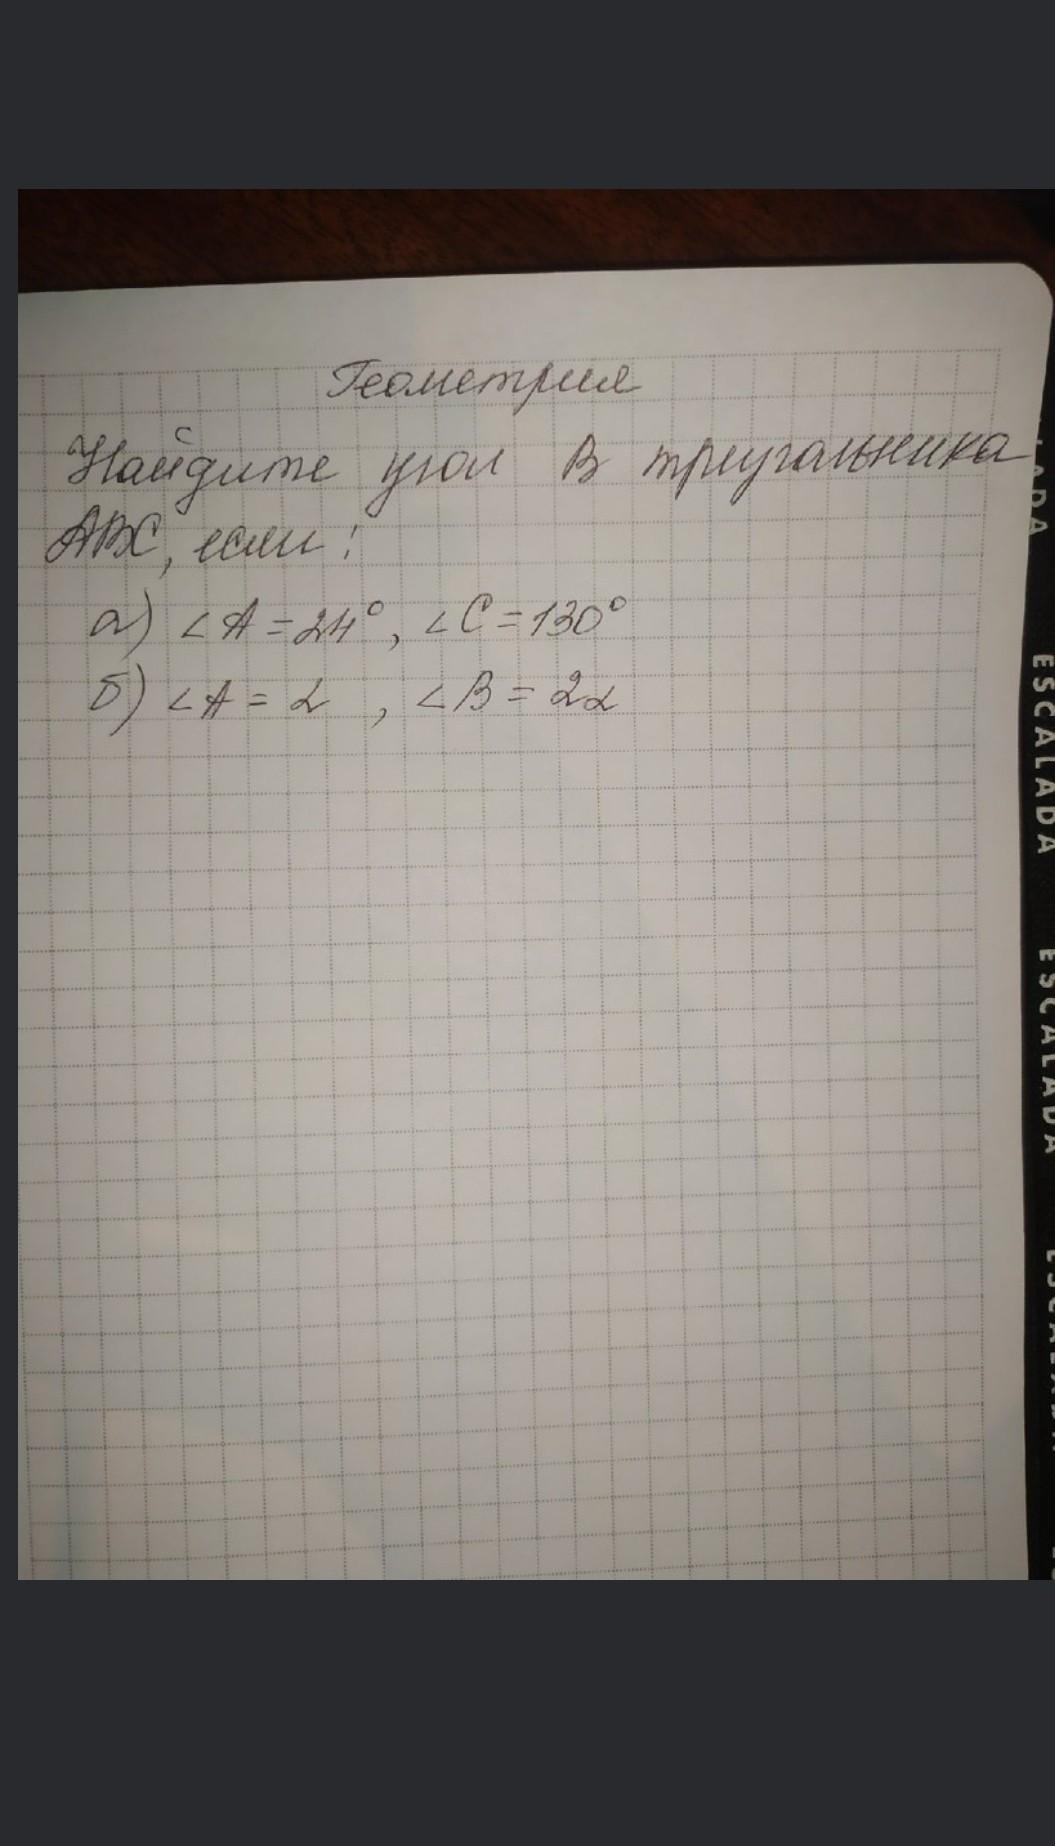 Геометрия
Найдите угол В треугольника
АВС, если:
а) ∠А = 24°, ∠С = 130°
б) ∠А = α , ∠В = 2α
ESCALADA
ESCALADA